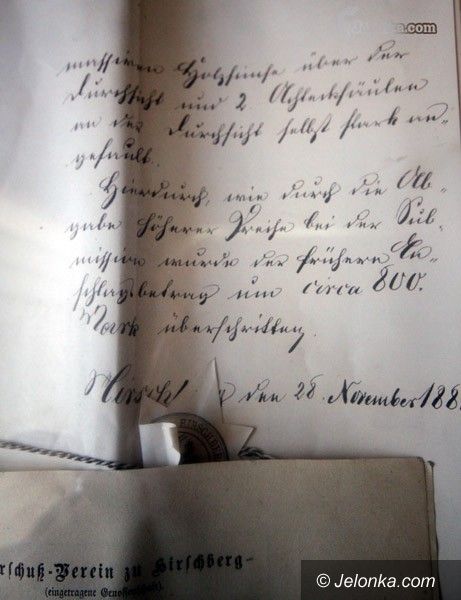 Jelonka.com
massiven Holzsimse über der
Durchsicht und 2. Achtecksäulen
an der Durchsicht selbst stark an-
gefault.
Hierdurch, wie durch die Ab-
gabe höherer Preise bei der Sub-
mission wurde der frühere An-
schlagsbetrag um circa 800.
Mark überschritten.
den 28. November 188
HIRSCHB
rschuß-Verein zu Hirschberg-
(eingetragene Genossenschaft).
© Jelonka.com